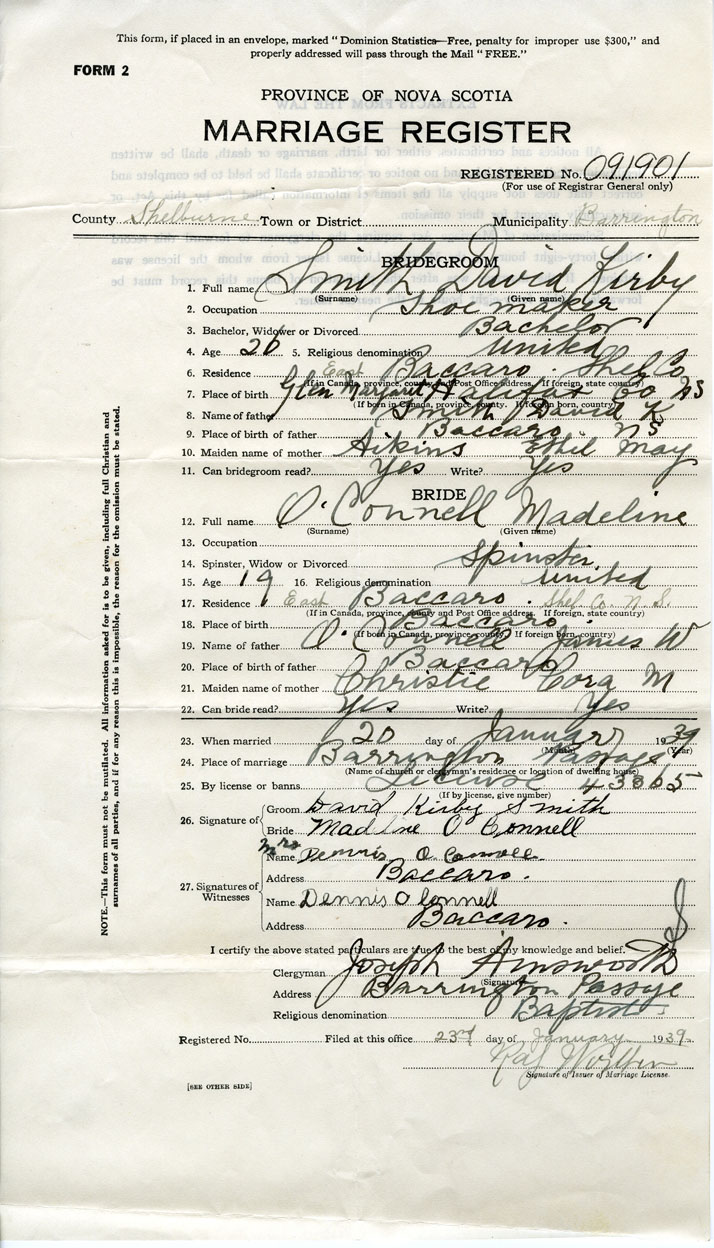 This form, if placed in an envelope, marked "Dominion Statistics—Free, penalty for improper use $300," and
properly addressed will pass through the Mail "FREE."
FORM 2
PROVINCE OF NOVA SCOTIA
MARRIAGE REGISTER
REGISTERED No. 091901
(For use of Registrar General only)
County Shelburne Town or District Municipality Barrington
BRIDEGROOM
1. Full name Smith David Kirby
(Surname) (Given name)
2. Occupation Shoe maker
3. Bachelor, Widower or Divorced Bachelor
4. Age 20 5. Religious denomination United
6. Residence East Baccaro. Shel Co
(If in Canada, province, county and Post Office address. If foreign, state country)
7. Place of birth Glen Margaret Halifax Co NS
(If born in Canada, province, county. If foreign born, country)
8. Name of father Smith David K
9. Place of birth of father Baccaro. NS
10. Maiden name of mother Aikins Ethel May
11. Can bridegroom read? Yes Write? Yes
BRIDE
12. Full name O'Connell Madeline
(Surname) (Given name)
13. Occupation
14. Spinster, Widow or Divorced Spinster
15. Age 19 16. Religious denomination United
17. Residence East Baccaro. Shel. Co. N.S.
(If in Canada, province, county and Post Office address. If foreign, state country)
18. Place of birth Baccaro.
(If born in Canada, province, county. If foreign born, country)
19. Name of father O'Connell James W
20. Place of birth of father Baccaro
21. Maiden name of mother Christie Cora M
22. Can bride read? Yes Write? Yes
23. When married 20 day of January 1939
(Month) (Year)
24. Place of marriage Barrington Passage
(Name of church or clergyman's residence or location of dwelling house)
25. By license or banns License 43865
(If by license, give number)
26. Signature of Groom David Kirby Smith
Bride Madline O'Connell
27. Signatures of Witnesses
Mrs
Name Dennis O. Connell
Address Baccaro.
Name Dennis O Connell
Address Baccaro.
I certify the above stated particulars are true to the best of my knowledge and belief.
Clergyman Joseph Ainsworth
(Signature)
Address Barrington Passage
Religious denomination Baptist
Registered No. Filed at this office 23rd day of January 1939.
Signature of Issuer of Marriage License.
[SEE OTHER SIDE]
NOTE.—This form must not be mutilated. All information asked for is to be given, including full Christian and
surnames of all parties, and if for any reason this is impossible, the reason for the omission must be stated.